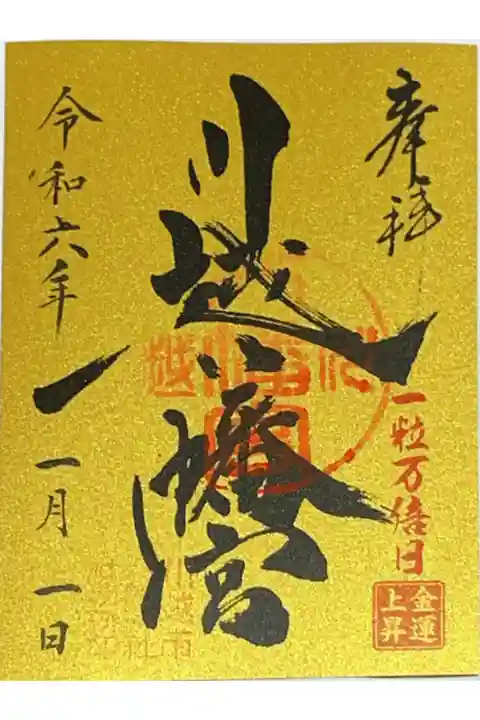 奉拝
一粒万倍日
金運
上昇
川越八幡宮
令和六年
一月一日